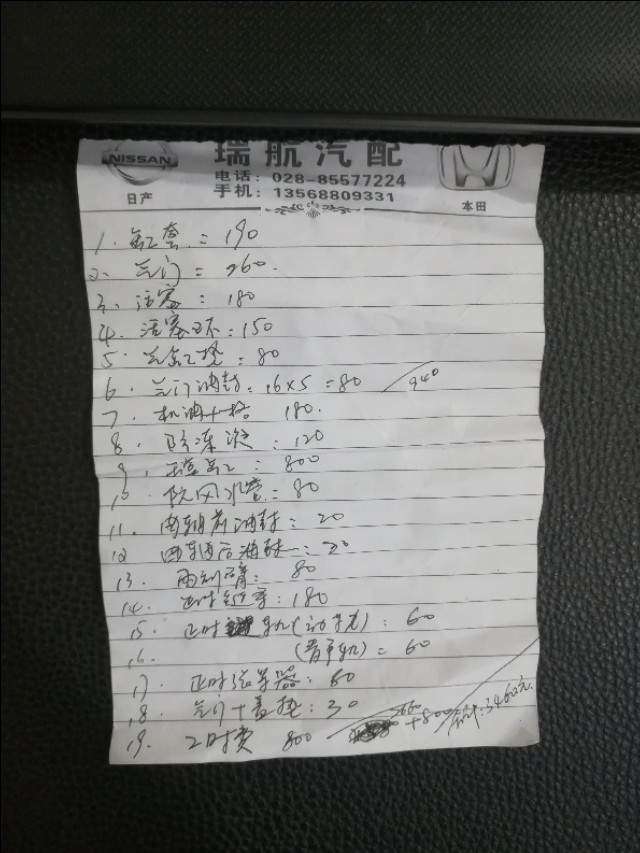 NISSAN
日产
瑞航汽配
电话：028-85577224
手机：13568809331
本田
1. 缸套：190
2. 气门：260.
3. 活塞：180
4. 活塞环：150
5. 气缸垫：80
6. 气门油封：16×5=80 940
7. 机油+格 180.
8. 防冻液：120
9. 800
10. 水管：80
11. 油封：20
12 后油封：20
13. 80
14. 正时链条：180
15. 正时轨(动轨)：60
16. (静轨)：60
17. 正时张紧器：60
18. 气门+盖垫：30
19. 工时费 800 660+800 合计：3460元.